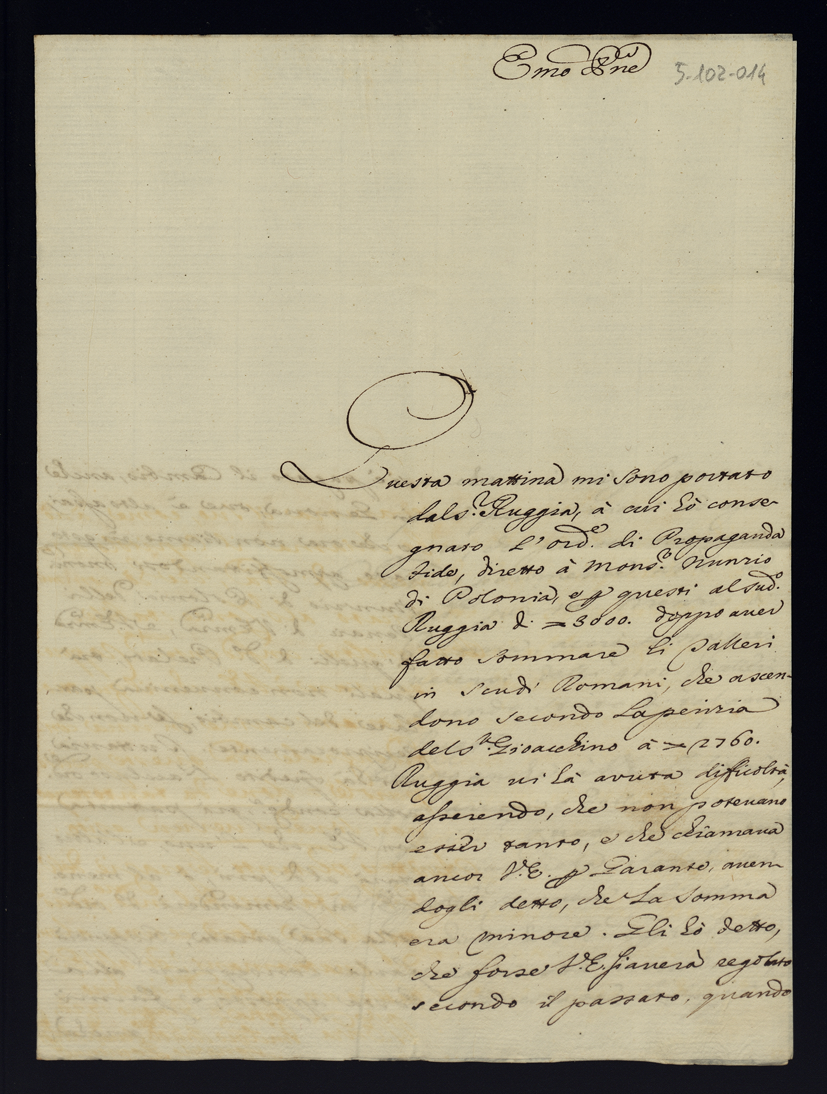 Emo Pne
5-102-014
Questa mattina mi sono portato
dal s.r Ruggia, à cui hò conse-
gnato l'ord.e di Propaganda
fide, diretto à Mons.r Nunzio
di Polonia, e p questi al sud.o
Ruggia d. 3000. doppo aver
fatto sommare li Talleri
in scudi Romani, che ascen-
dono secondo la perizia
del s.r Gioacchino à 2760.
Ruggia vi hà avuta difficoltà,
asserendo, che non potevano
esser tanto, e che chiamava
ancor V.E. p Garante, aven-
dogli detto, che la somma
era minore. Gli hò detto,
che forse V.E. si averà regolato
secondo il passato, quando